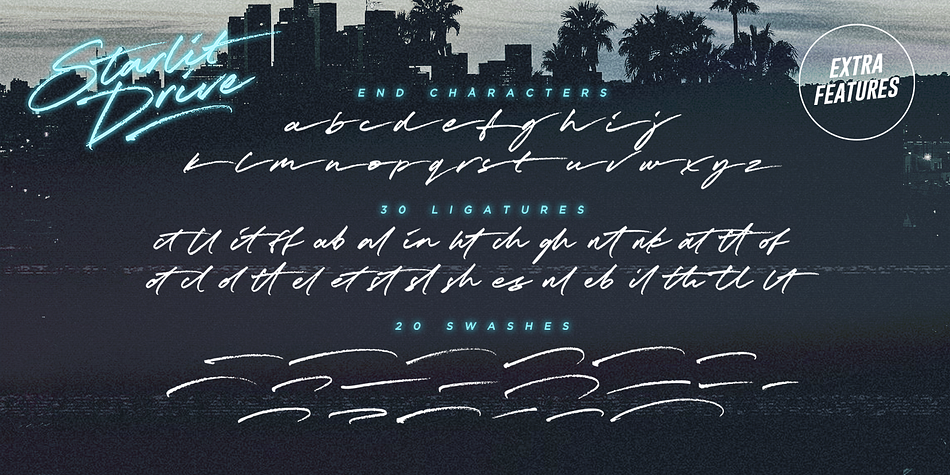 Starlit
Drive
EXTRA
FEATURES
END CHARACTERS
a b c d e f g h i j
k l m n o p q r s t u v w x y z
30 LIGATURES
ct ll it ff ab al in ht ch gh nt nk at tt of
ot cl ol tl el et st sl sh es nl eb il th tl lt
20 SWASHES